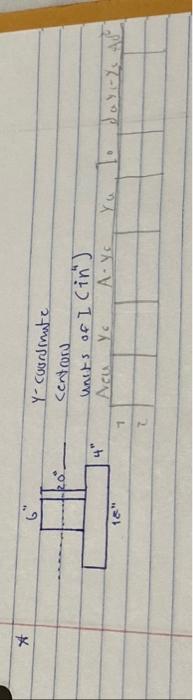 *
6"
20"
4"
18"
Y-coordinate
centroid
units of I (in⁴)
Area Yc A-Yc Ya Io d=Yc-Ya Ad²
1
2